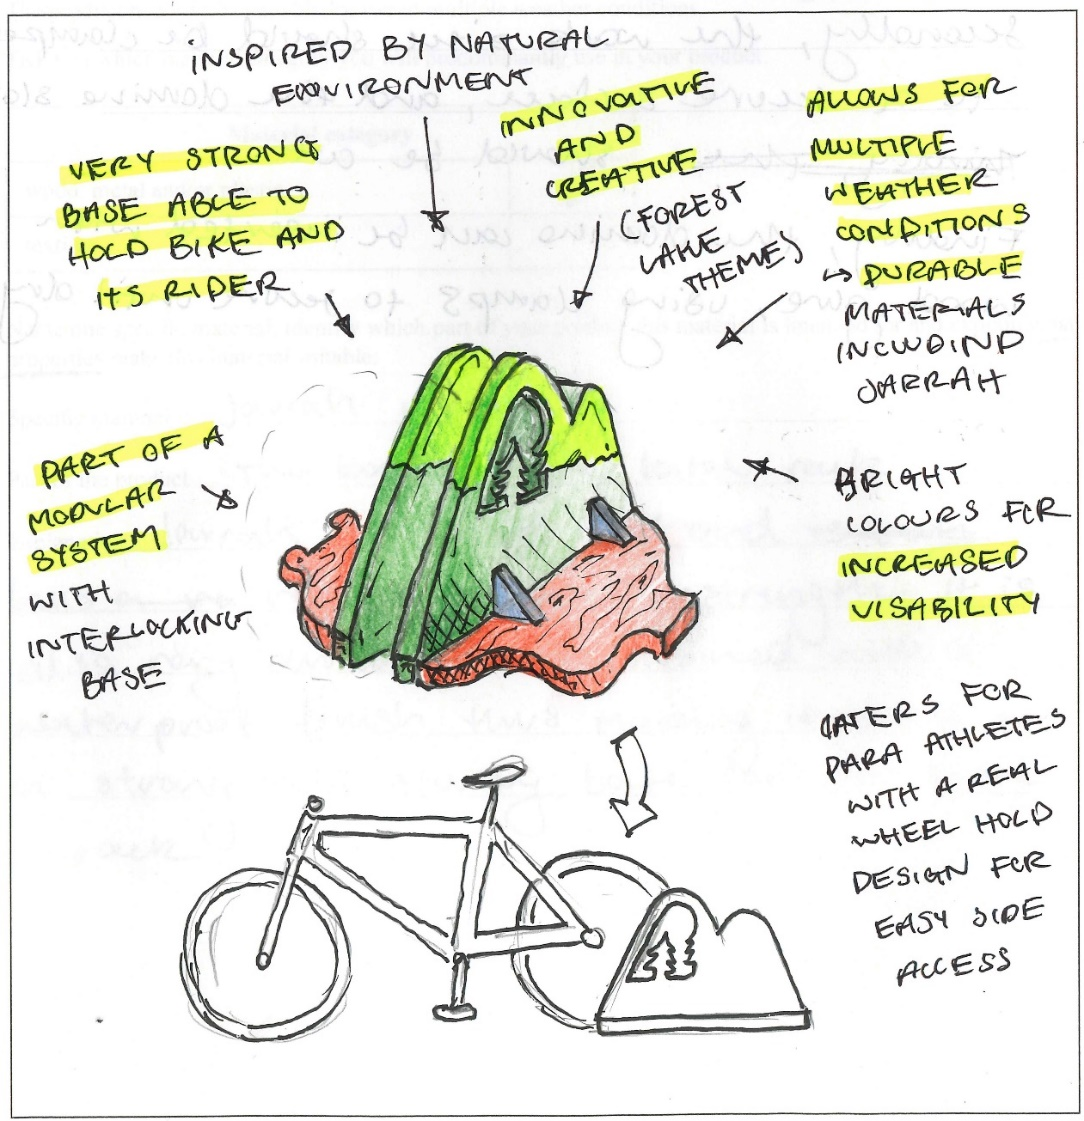 INSPIRED BY NATURAL
ENVIRONMENT
VERY STRONG
BASE ABLE TO
HOLD BIKE AND
ITS RIDER
INNOVOLTIVE
AND
CREATIVE
(FOREST
LAKE
THEMES)
ALLOWS FOR
MULTIPLE
WEATHER
CONDITIONS
↳ DURABLE
MATERIALS
INCLUDIND
JARRAH
PART OF A
MODULAR
SYSTEM
WITH
INTERLOCKING
BASE
BRIGHT
COLOURS FOR
INCREASED
VISABILITY
CATERS FOR
PARA ATHLETES
WITH A REAL
WHEEL HOLD
DESIGN FOR
EASY SIDE
ACCESS